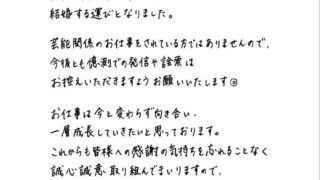 結婚する運びとなりました。
芸能関係のお仕事をされている方ではありませんので、
今後とも憶測での発信や詮索は
お控えいただきますようお願いいたします
お仕事は今と変わらず向き合い、
一層成長していきたいと思っております。
これからも皆様への感謝の気持ちを忘れることなく
誠心誠意取り組んでまいりますので、